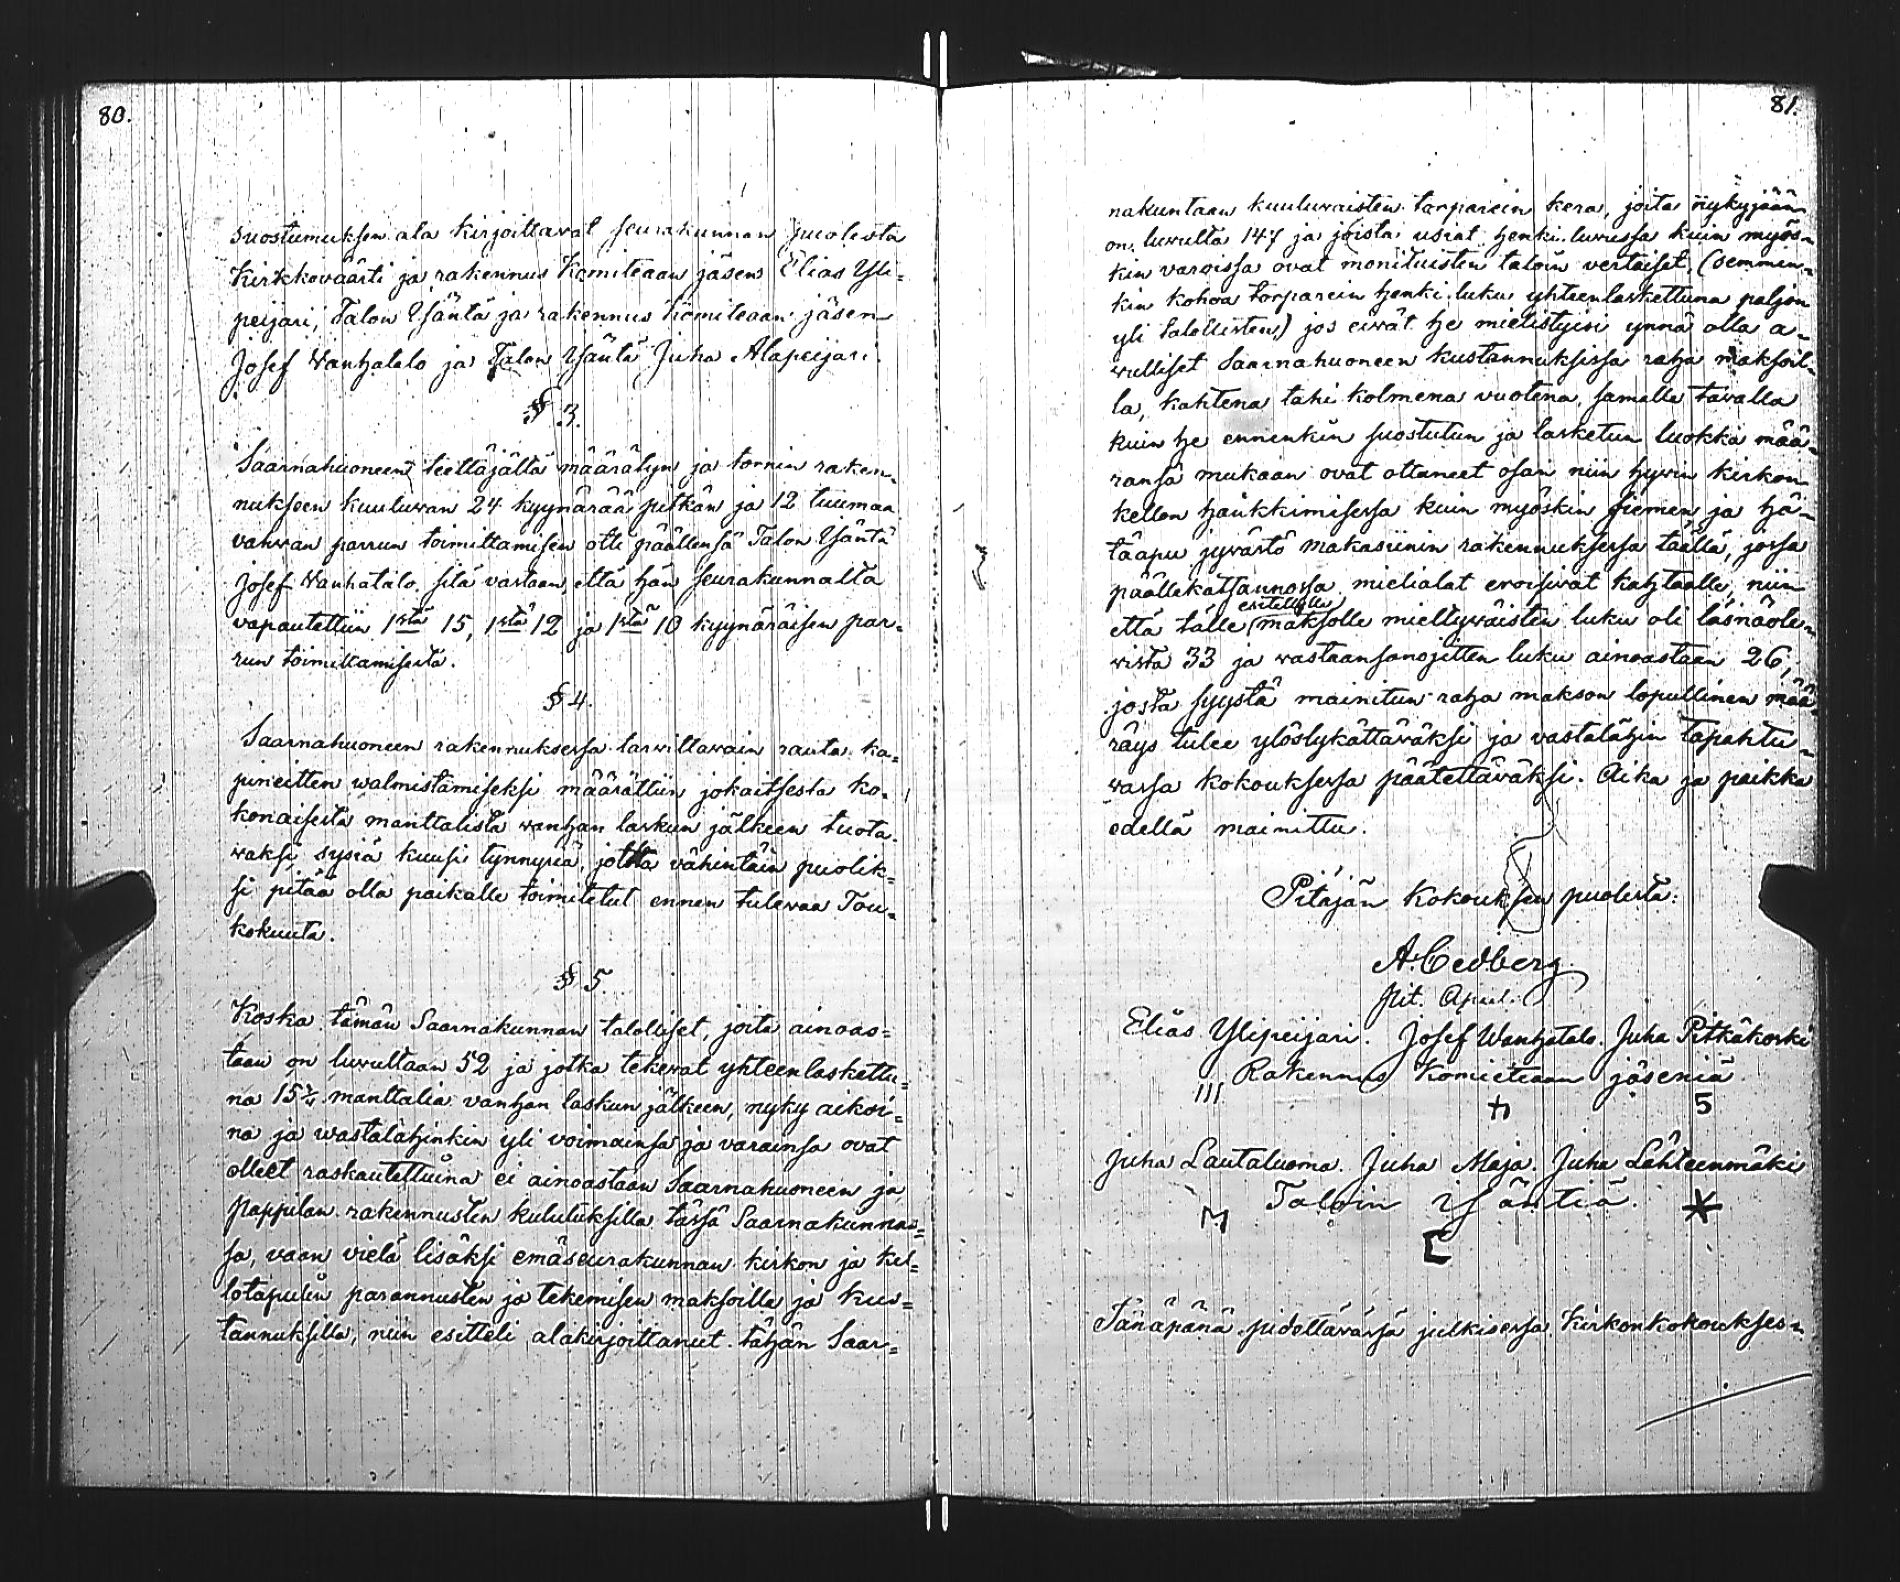 80.
suostumuksen ala kirjoittavat seurakunnan puolesta
Kirkkoväärti ja rakennus Komiteaan jäsen Elias Yli=
peijari, Talon Isäntä ja rakennus Komiteaan jäsen
Josef Wanhatalo ja Talon Isäntä Juha Alapeijari.
§ 3.
Saarnahuoneen teettäjältä määrätyn ja tornin raken=
nukseen kuuluwan 24 kyynärää pitkän ja 12 tuumaa
vahwan parrun toimittamisen otti päällensä Talon Isäntä
Josef Wanhatalo sitä vastaan, että hän seurakunnalta
vapautettiin 1stä 15, 1stä 12 ja 1stä 10 kyynäräisen par=
run toimittamisesta.
§ 4.
Saarnahuoneen rakennuksessa tarwittawain rauta ka=
pineitten walmistamiseksi määrättiin jokaitsesta ko=
konaisesta manttalista wanhan laskun jälkeen tuota=
waksi sysiä kuusi tynnyriä, jotka vähintäin puolik=
si pitää olla paikalle toimitetut ennen tulewaa Tou=
kokuuta.
§ 5.
Koska tämän Saarnakunnan talolliset, joita ainoas=
taan on luvultaan 52 ja jotka tekevät yhteenlaskettu=
na 15 ¼ manttalia vanhan laskun jälkeen, nyky aikoi=
na ja wastalähinkin yli voimainsa ja varainsa ovat
olleet raskautettuina ei ainoastaan Saarnahuoneen ja
pappilan rakennusten kulutuksilla tässä Saarnakunnas=
sa, vaan vielä lisäksi emäseurakunnan kirkon ja kel=
lotapulin parannusten ja tekemisen maksoilla ja kus=
tannuksilla, niin esitteli alakirjoittanut tähän Saar=
81.
nakuntaan kuuluvaisten torparein kera, joita nykyjään
on luvulta 147 ja joista usiat henki luvussa kuin myös=
kin varoissa ovat monituisten taloin vertaiset, (semmen=
kin kohoa torparein henki luku yhteenlaskettuna paljon
yli talollisten,) jos eivät he mielistyisi ynnä olla a=
wulliset Saarnahuoneen kustannuksissa raha maksoil=
la, kahtena tahi kolmena vuotena, samalla tavalla
kuin he ennenkin suostutun ja lasketun luokka mää=
ränsä mukaan ovat ottaneet osan niin hywin kirkon
kellon haukkimisessa kuin myöskin siemen ja hä=
täapu jywästö makasiinin rakennuksessa täällä, jossa
päällekatsannossa mielialat eroisivat kahtaalle, niin
esitellylle
että tälle maksolle mieltywäisten luku oli läsnäole=
wista 33 ja wastaansanojitten luku ainoastaan 26,
josta syystä mainitun raha makson lopullinen mää=
räys tulee ylöslykättäväksi ja vastalähin tapahtu=
wassa kokouksessa päätettäväksi. Aika ja paikka
edellä mainittu.
Pitäjän Kokouksen puolesta:
A. Cedberg
Pit. Apul.
Elias Ylipeijari. Josef Wanhatalo. Juha Pitkäkoski
Rakennus Komieteaan jäseniä
Juha Lautaluoma. Juha Maja. Juha Lähteenmäki
Taloin isäntiä.
Tänäpänä pidettävässä julkisessa Kirkonkokoukses=